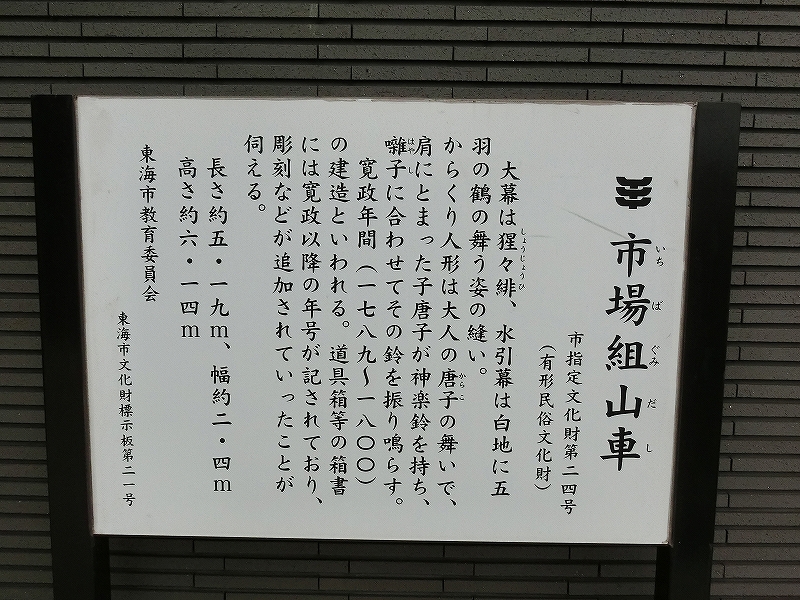 市場組山車
いちばぐみだし
市指定文化財第二四号
(有形民俗文化財)
大幕は猩々緋、水引幕は白地に五
しょうじょうひ
羽の鶴の舞う姿の縫い。
からくり人形は大人の唐子の舞いで、
からこ
肩にとまった子唐子が神楽鈴を持ち、
囃子に合わせてその鈴を振り鳴らす。
はやし
寛政年間(一七八九〜一八〇〇)
の建造といわれる。道具箱等の箱書
には寛政以降の年号が記されており、
彫刻などが追加されていったことが
伺える。
長さ約五・一九m、幅約二・四m
高さ約六・一四m
東海市教育委員会
東海市文化財標示板第二一号